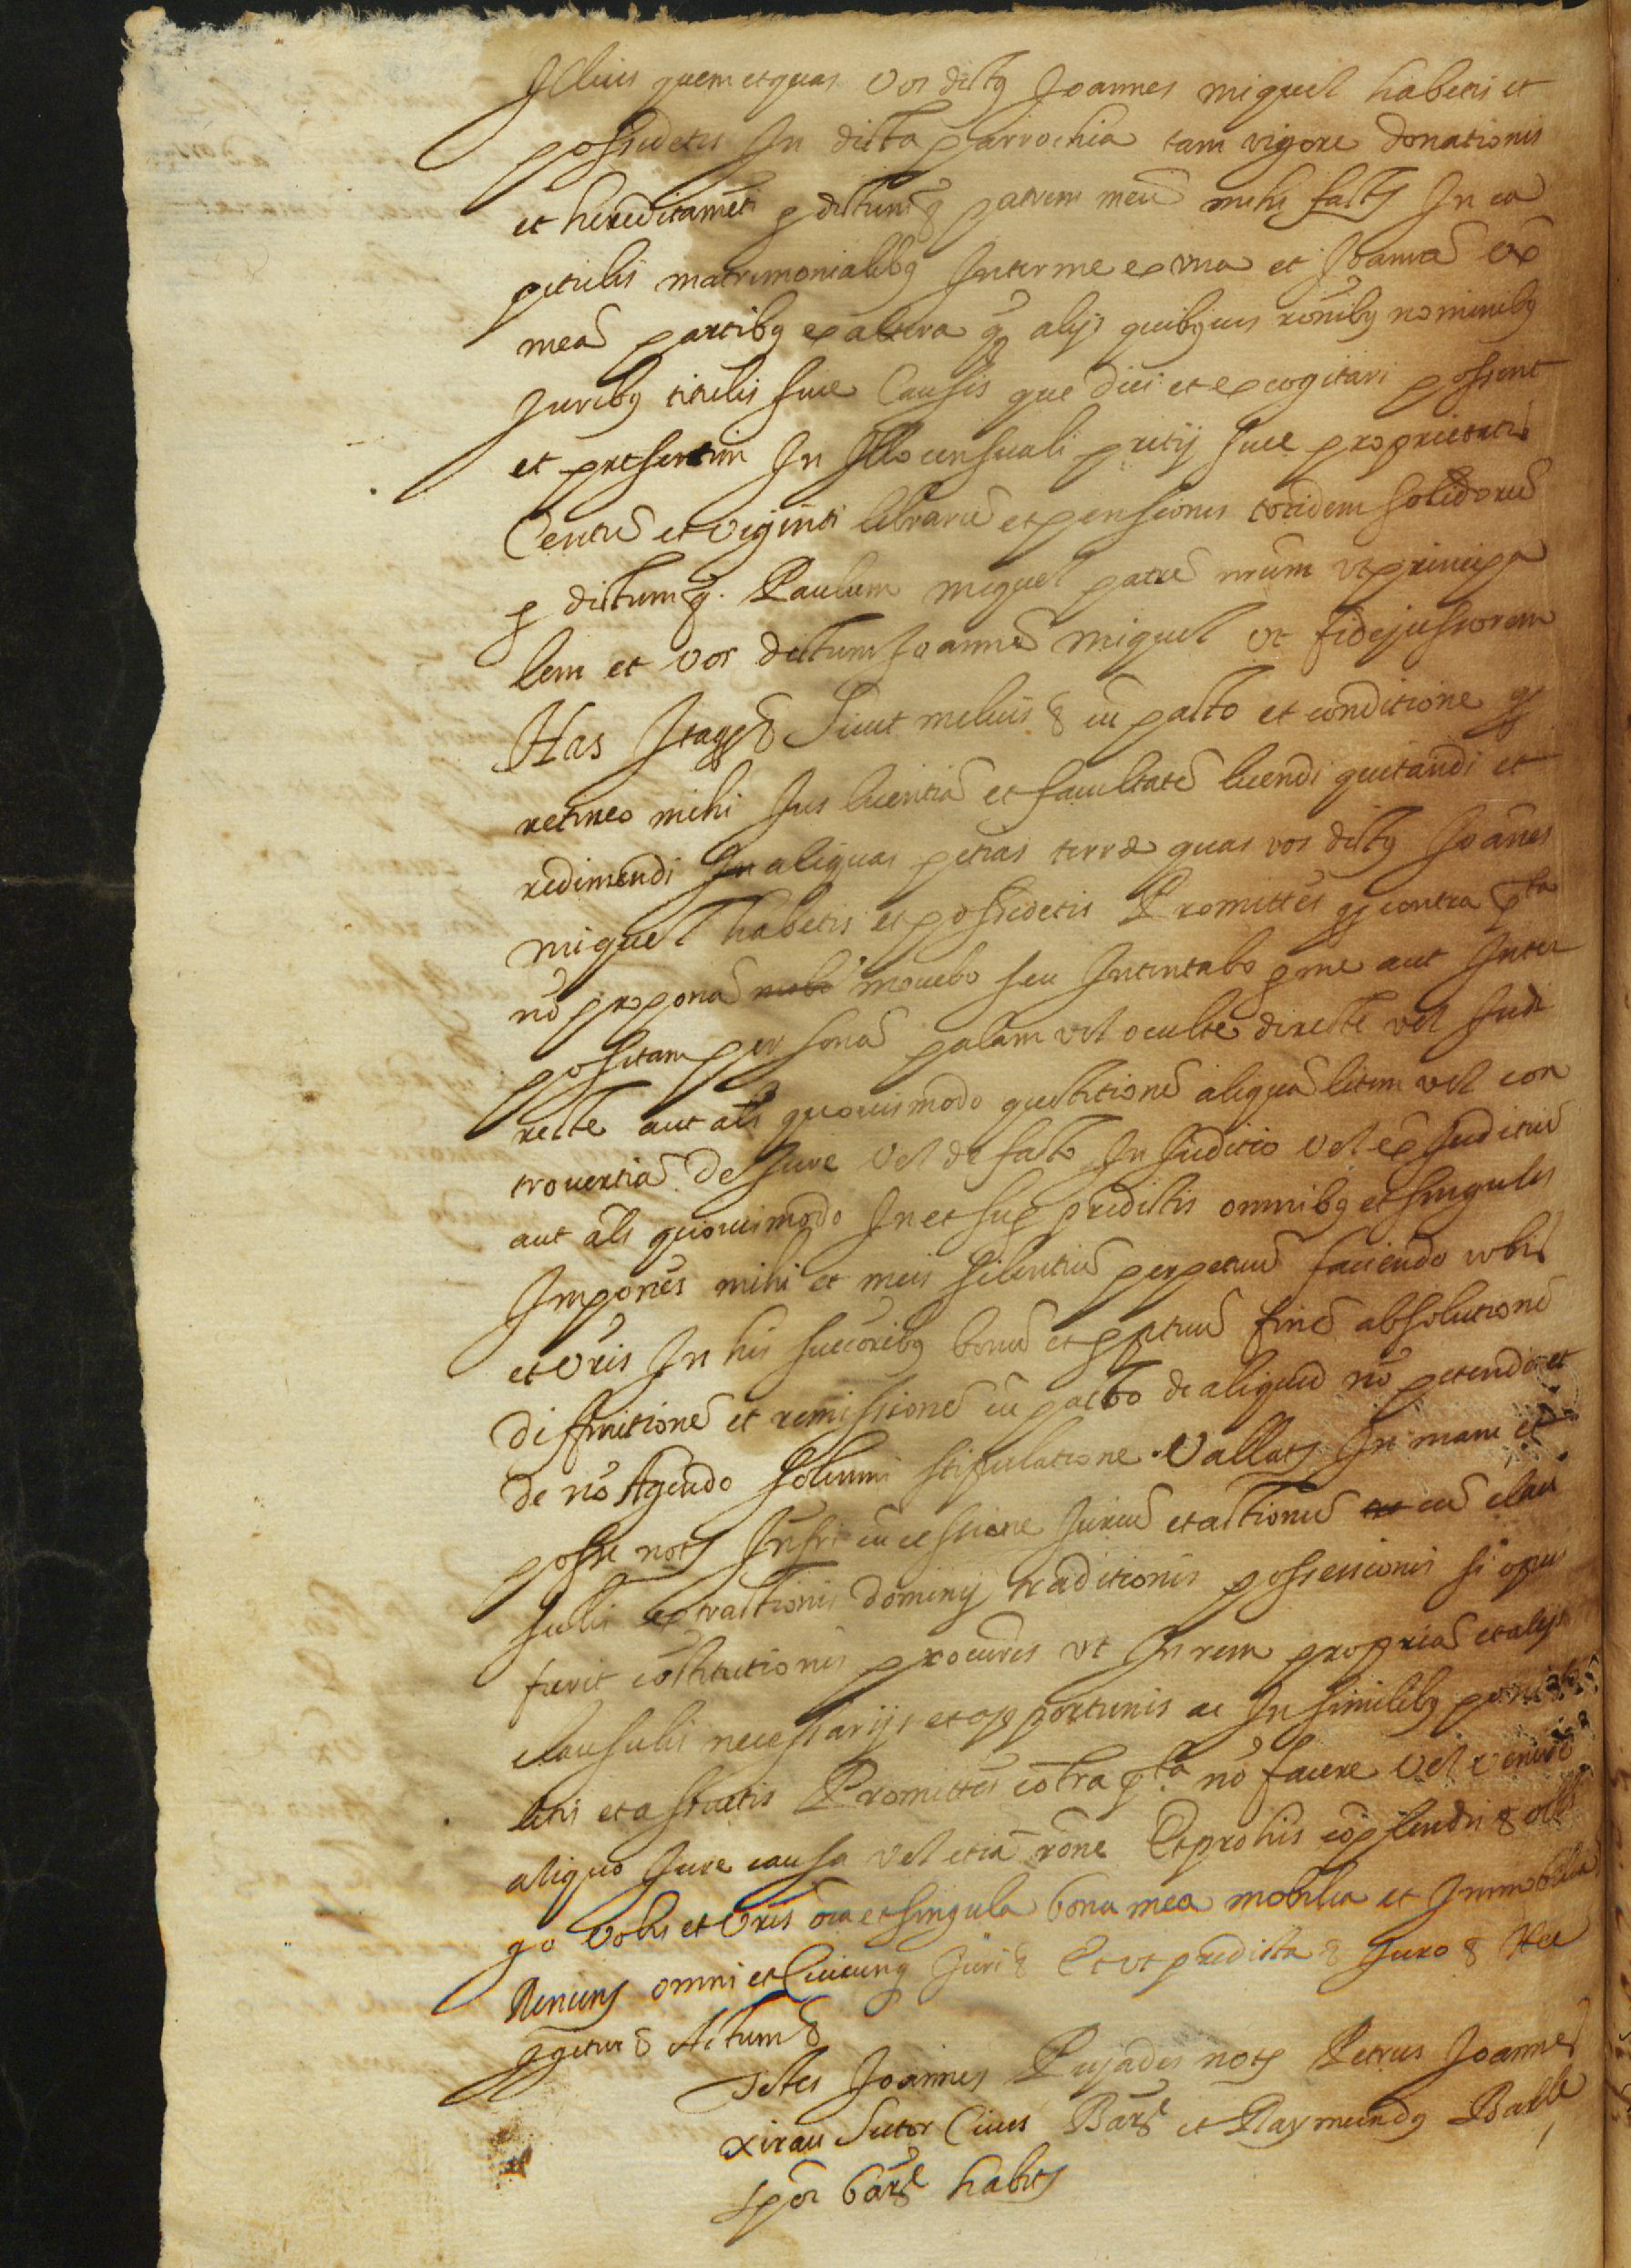 Illius quem et quas vos dictus Joannes miquel habetis et
possidetis In dicta parrochia tam vigore donationis
et hereditamēti p dictum q̊ patrem meū mihi factȩ In ca
pitulis matrimonialibus Inter me ex vna et Joannā vxō
meā partibus ex altera q̊ alijs quibusuis rōnibus nominibus
Juribus titulis siue Causis que dici et excogitari possent
et presertim In Illo censuali pretij siue proprietatis
Centū et viginti librarū et pensionis totidem solidorū
p dictum q̊. Paulum miquel patrē nrūm vt principa
lem et vos dictum Joannē miquel vt fidejussorem
Has Itaq̨ &c Sicut melius &c cū pacto et conditione q̊
retineo mihi Jus licentiā et facultatē luendi quitandi et
redimendi In aliquas petias terræ quas vos dictus Joānes
miquel habetis et possidetis Promittēs q̊ contra pta
nō proponā mouebo seu Intentabo p me aut Inter
positam personā palam vel oculte directe vel Indi
recte aut als quouismodo questionē aliquā litem vel con
trouertiā De Jure vel de facto In Juditio vel ex Juditiū
aut als quouismodo In et sup predictis omnibus et singulis
Imponēs mihi et meis silentiū perpetuū faciendo vobis
et vris In his succōribus bonū et pptuū finē absolutionē
diffinitionē et remissionē cū pacto de aliquid nō petendo et
de nō Agendo solemni stipulatione vallatȩ In manu et
posse notȩ Infri cū cessione Juriū et actionū cū clau
sulis extractionis dominij traditionis possessionis si opus
fuerit cōstitutionis procuris vt In rem propriā et alijs
clausulis necessarijs et opportunis ac In similibus poni
litis et astuetis Promittēs cōtra pta nō facere vel venire
aliquo Jure causa vel etiā rōne Et pro his cōplendis &c obli
go vobis et vris oīa et singula bona mea mobilia et Immobilia
Renuns omni et Cuicunq̨ Juri &c Et vt predicta &c Juro &c Hec
Igitur &c Actum &c
Testes Joannes Pujades notȩ Petrus Joannes
xirau sutor Ciues Barȩ et Raymundus Batlle
scpōr barȩ habitȩ